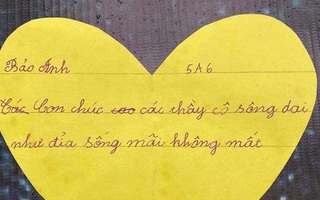 Bảo Anh 5A6
Các Con chúc sao các thầy cô sống dai
như đỉa sống mãi không mất